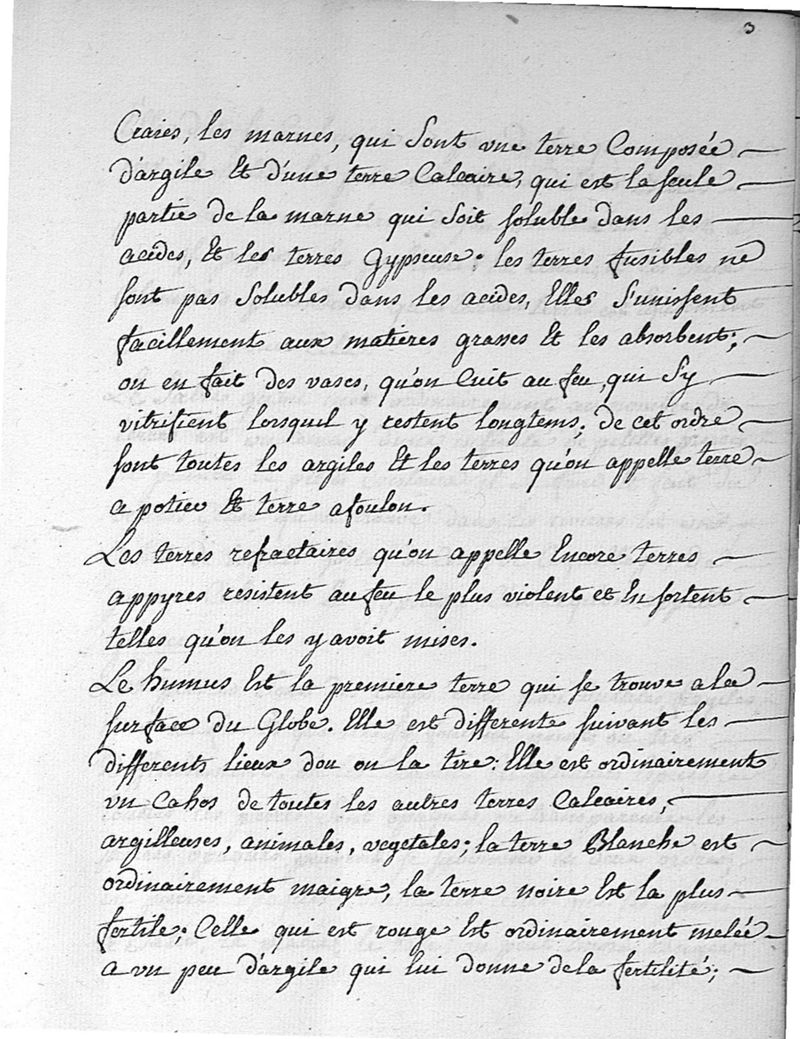 3
Craies, les marnes, qui sont une terre Composée
d'argile Et d'une terre Calcaire, qui est la seule
partie de la marne qui soit soluble dans les
acides, Et les terres Gypseuse. les terres fusibles ne
sont pas solubles dans les acides, Elles s'unissent
facillement aux matieres grasses Et les absorbent;
on en fait des vases, qu'on Cuit au feu, qui sy
vitrifient lorsquil y restent longtems. de cet ordre
sont toutes les argiles Et les terres qu'on appelle terre
a potier Et terre afoulon.
Les terres refractaires qu'on appelle Encore terres
appyres resistent au feu le plus violent et En sortent
telles qu'on les y avoit mises.
Le humus Est la premiere terre qui se trouve a la
surface du Globe. Elle est differente suivant les
differents lieux dou on la tire: Elle est ordinairement
un Cahos de toutes les autres terres Calcaires,
argilleuses, animales, vegetales; la terre Blanche est
ordinairement maigre, la terre noire Est la plus
fertile; Celle qui est rouge Est ordinairement melée
a un peu d'argile qui lui donne dela fertilité;